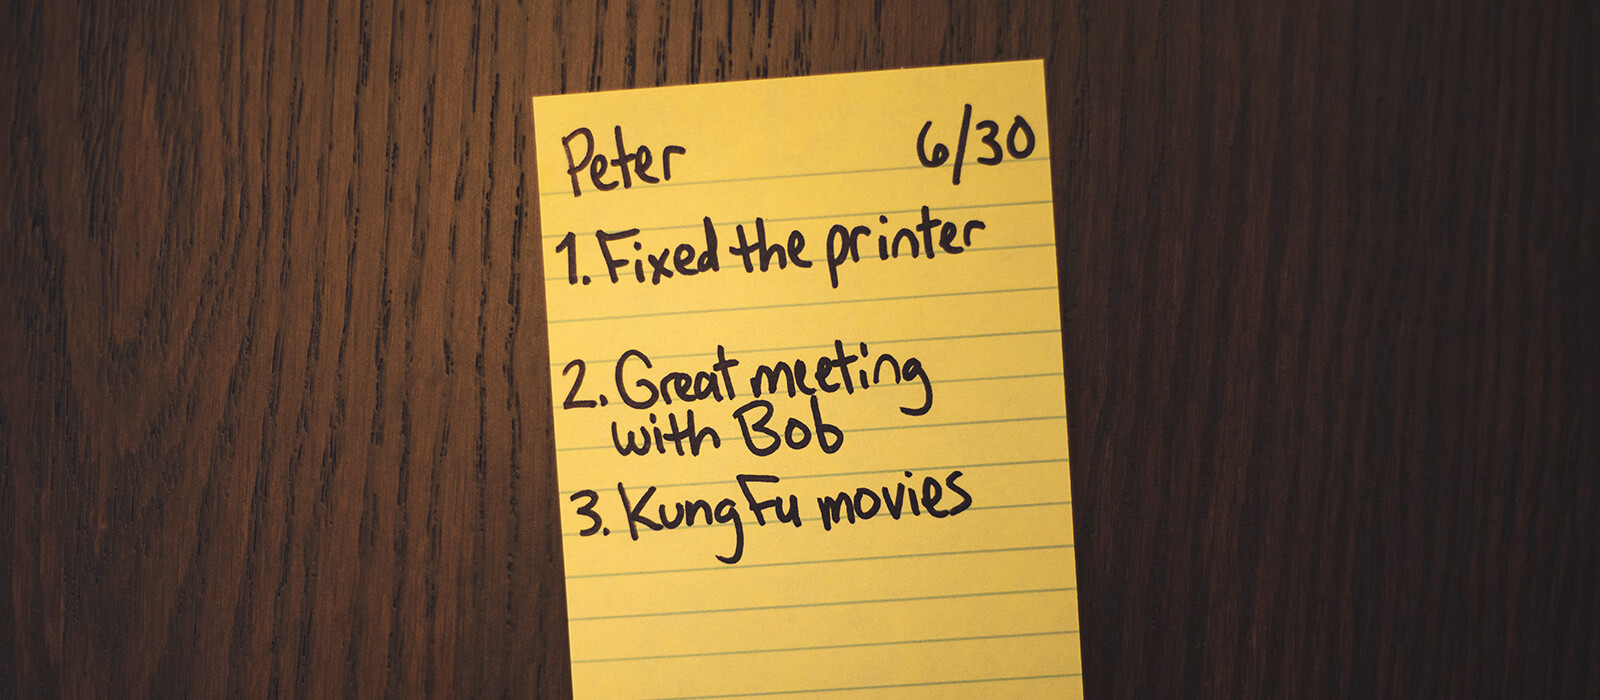 Peter 6/30
1. Fixed the printer
2. Great meeting
with Bob
3. Kung Fu movies